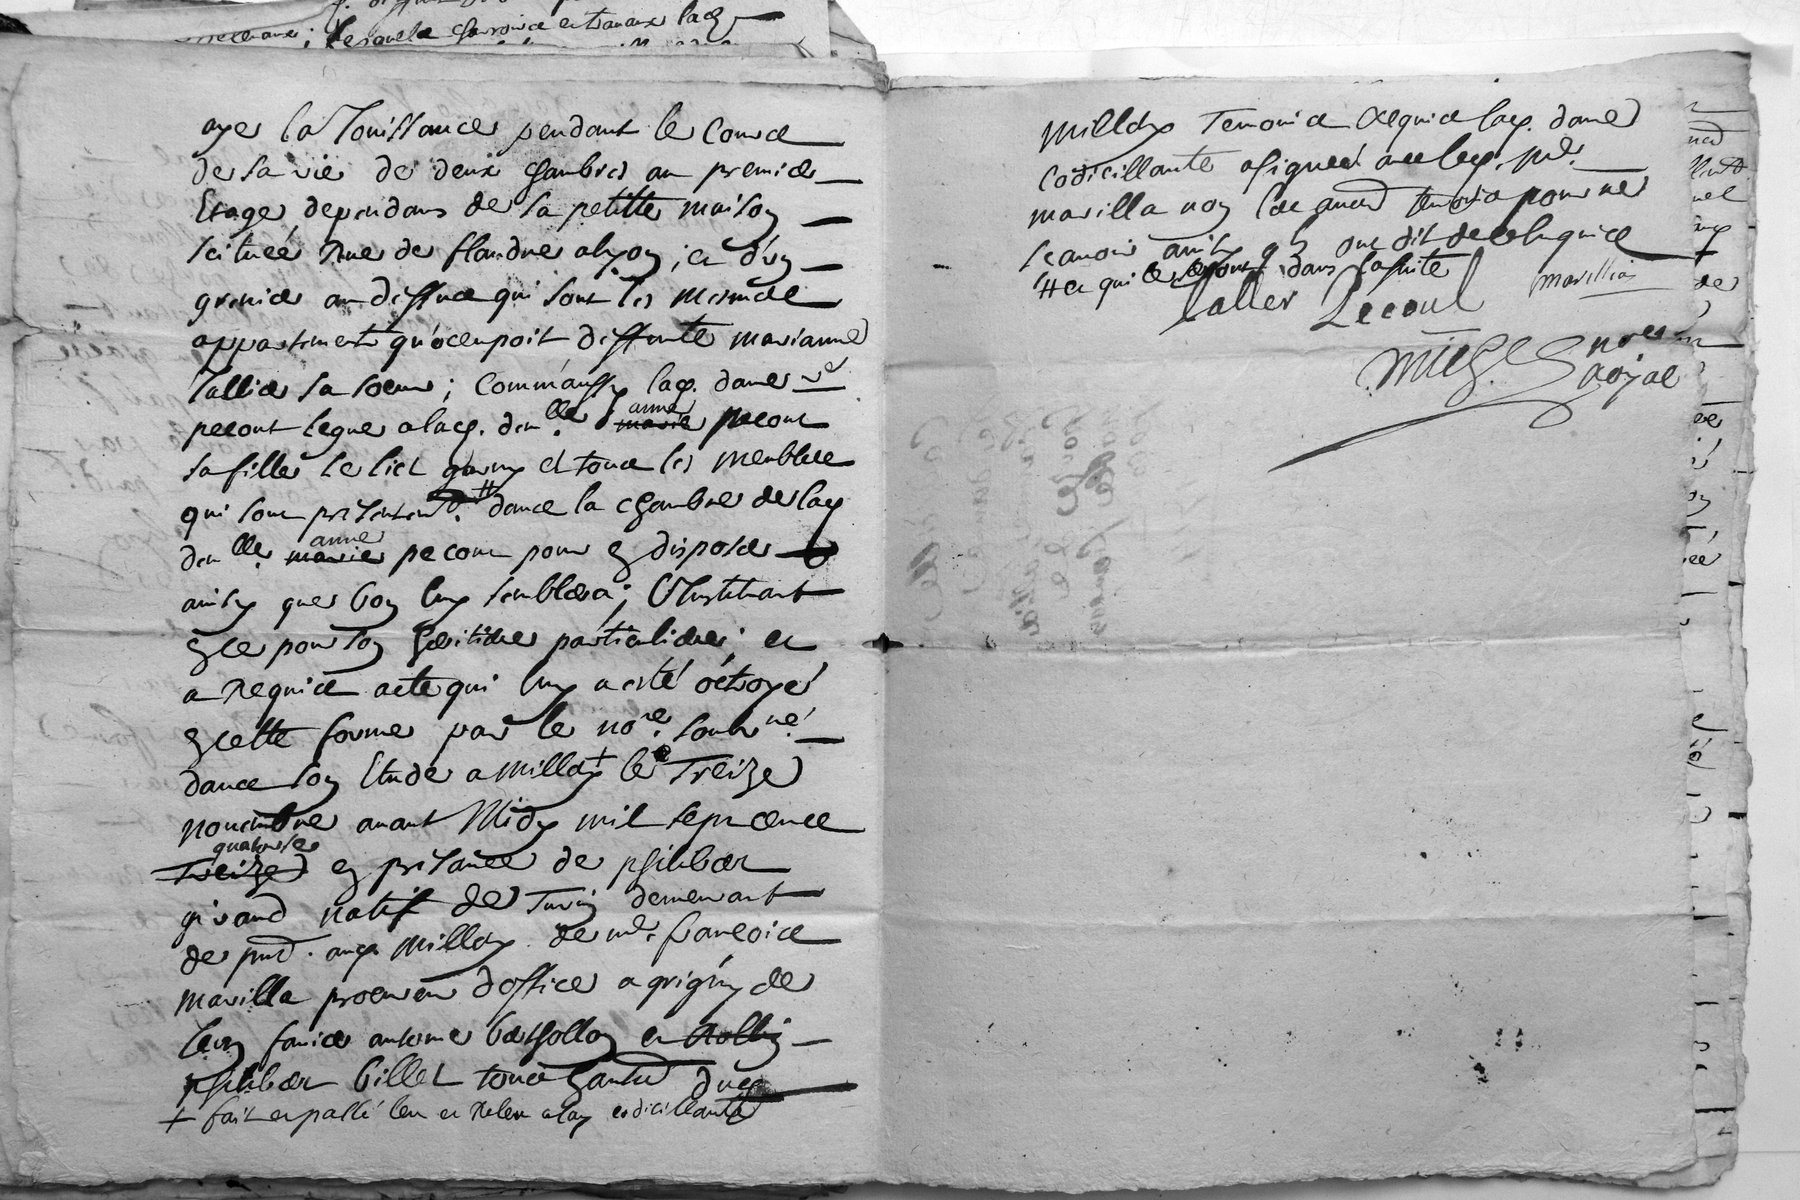 aye la Jouissance pendant le Cours
de sa vie de deux chambres au premier
Etage dependans de sa petitte maison
scituée Rue de flandre a lyon, et d'un
grenier au dessus qui sont les mesmes
appartements qu'occupoit deffunte marianne
lallier sa soeur; comm'aussy lad. dame ve
pecout legue a lad. dlle marie anne pecout
sa fille le lict garny et tous les meubles
qui sont presentemt. # dans la chambre de lad.
dlle. marie anne pecout pour en disposer
ainsy que bon luy semblera; L'Instituant
en ce pour son heritiere particuliere; et
a Requis acte qui luy a esté octroyé
en cette forme par le nore. soubsne.
dans son Etude a Millery + le Treize
novembre avant Midy mil sept cents
Treize quatorze en presance de philiber
giraud natif de Turin demeurant
de pnt. aud. Millery de me. francois
marilla procureur d'office a grigny de
sr. antoine berthollon et
philiber billet tous dud.
+ fait et passé leu et Releu a lad. codicillante
Millery Temoins Requis lad. dame
codicillante a signé avec led. sr.
marilla non les autres temoins pour ne
scavoir ainsy qu'ils ont dit de ce Requis
# et qui se dans la suite
laller Pecout marillia
nore
Royal